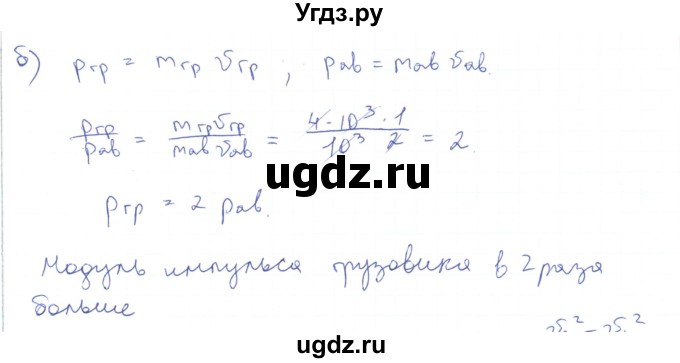 Угдз.ру
б) pгр = mгр υгр ; pав = mав υав.
pгр/pав = mгрυгр/mавυав = 4·10³·1/10³ 2 = 2.
ugdz.ru
pгр = 2 pав.
Модуль импульса грузовика в 2 раза
больше
ugdz.ru